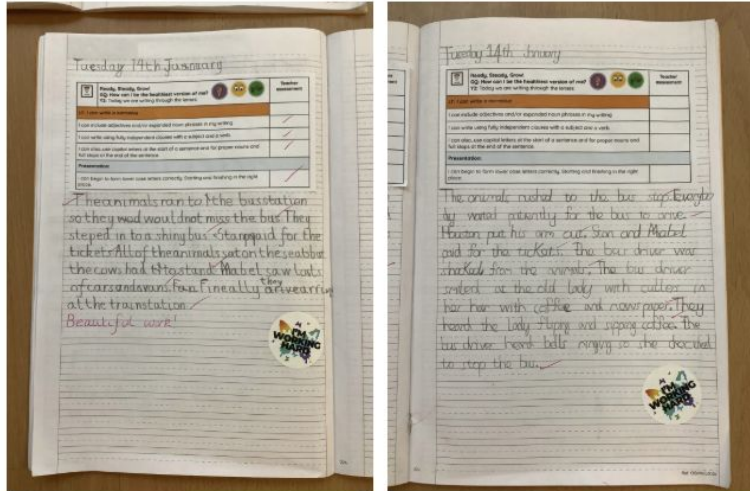 Tuesday 14th Jusnuary
Ready, Steady, Grow!
EQ: How can I be the healthiest version of me?
Y2: Today we are writing through the lenses:
Teacher
assessment
LI: I can write a narrative
I can include adjectives and/or expanded noun phrases in my writing
I can write using fully independent clauses with a subject and a verb.
I can also use capital letters at the start of a sentence and for proper nouns and
full stops at the end of the sentence.
Presentation:
I can begin to form lower case letters correctly. Starting and finishing in the right
place.
The animals ran to the bus station
so they would not miss the bus. They
steped in to a shiny bus. Stan paid for the
tickets. All of the animals sat on the seats but
the cows had to stand. Mabel saw lots
of cars and vans. Fineally they
at the train station.
Beautiful work!
I'M
WORKING
HARD
Tuesday 14th January
Ready, Steady, Grow!
EQ: How can I be the healthiest version of me?
Y2: Today we are writing through the lenses:
Teacher
assessment
LI: I can write a narrative
I can include adjectives and/or expanded noun phrases in my writing
I can write using fully independent clauses with a subject and a verb.
I can also use capital letters at the start of a sentence and for proper nouns and
full stops at the end of the sentence.
Presentation:
I can begin to form lower case letters correctly. Starting and finishing in the right
place.
The animals rushed to the bus stop. Everybo
dy waited patiently for the bus to arive.
put his arm out. Stan and Mabel
paid for the tickets. The bus driver was
shocked from the animals. The bus driver
smiled at the old lady with in
her hair with coffee and newspaper. They
heard the lady and sipping coffee. The
bus driver heard bells ringing so she decided
to stop the bus.
I'M
WORKING
HARD